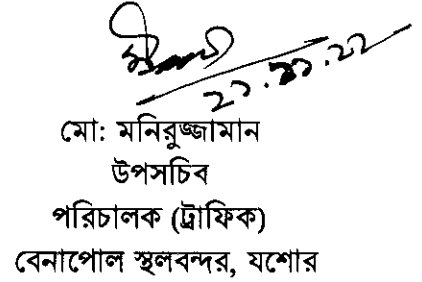 মো: মনিরুজ্জামান
উপসচিব
পরিচালক (ট্রাফিক)
বেনাপোল স্থলবন্দর, যশোর